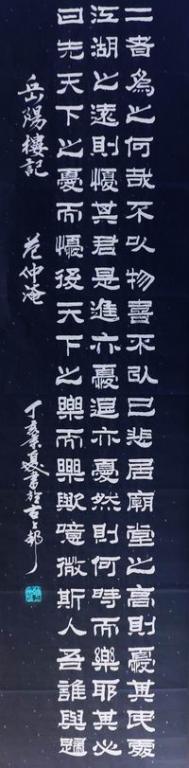 二者為之何哉不以物喜不以己悲居廟堂之高則憂其民處
江湖之遠則憂其君是進亦憂退亦憂然則何時而樂耶其必
曰先天下之憂而憂後天下之樂而樂歟噫微斯人吾誰與歸
岳陽樓記 范仲淹
丁亥季夏書於古上邽